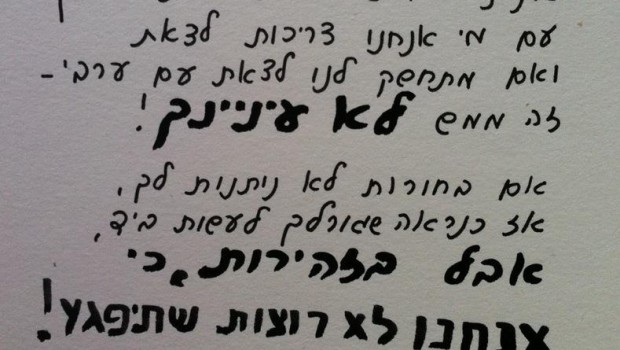 עם מי אנחנו צריכות לצאת
ואם מתחשק לנו לצאת עם ערבי -
זה ממש לא עיניינך!
אם בחורות לא ניתנות לך,
אז כנראה שגורלך לעשות ביד,
אבל בזהירות, כי
אנחנו לא רוצות שתיפגע!